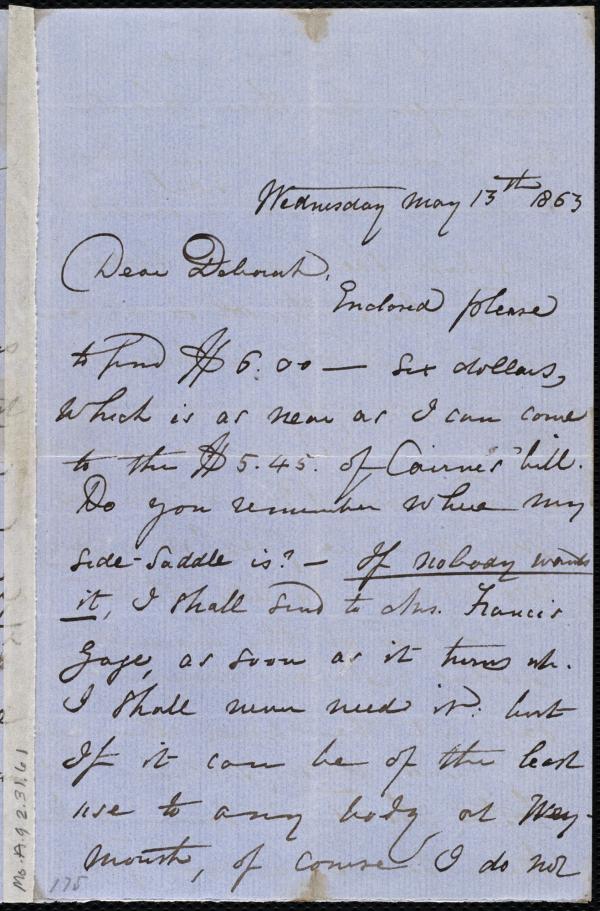 Wednesday May 13th 1863
Dear Deborah,
Enclosed please
to find $6.00 — six dollars,
which is as near as I can come
to the $5.45. of Cairnes' bill.
Do you remember where my
side-saddle is? — If nobody wants
it, I shall send to Mrs. Francis
Gage, as soon as it turns up.
I shall never need it: but
If it can be of the least
use to any body at Wey-
mouth, of course I do not
175
Ms. A.9.2.31.61